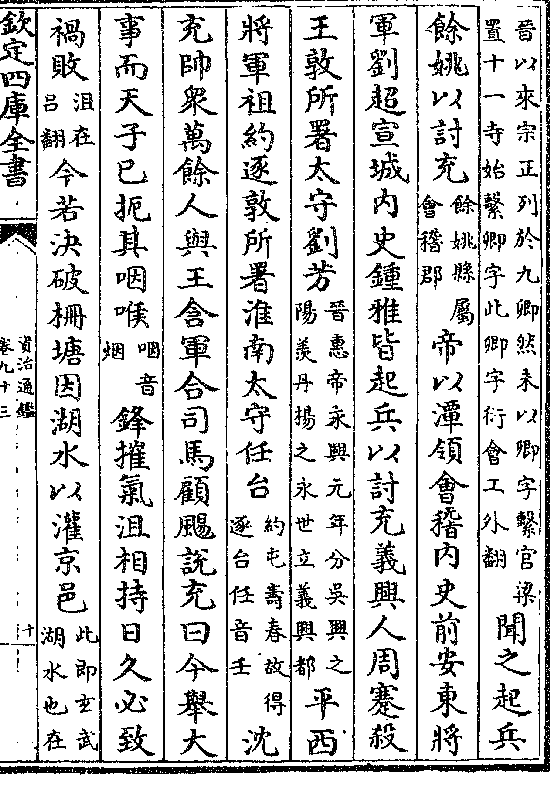 晉以來宗正列於九卿然未以卿字繫官梁
置十一寺始繫卿字此卿字衍會工外翻
聞之起兵
餘姚以討充
餘姚縣屬
會稽郡
帝以潭領會稽内史前安東將
軍劉超宣城内史鍾雅皆起兵以討充義興人周蹇殺
王敦所署太守劉芳
晉惠帝永興元年分吳興之
陽羨丹揚之永世立義興都
平西
將軍祖約逐敦所署淮南太守任台
約屯壽春故得
逐台任音壬
沈
充帥衆萬餘人與王含軍合司馬顧颺說充曰今舉大
事而天子已扼其咽喉
咽音
烟
鋒摧氣沮相持日久必致
禍敗
沮在
呂翻
今若決破柵塘因湖水以灌京邑
此即玄武
湖水也在
欽定四庫全書
資治通鑑
卷九十三
十